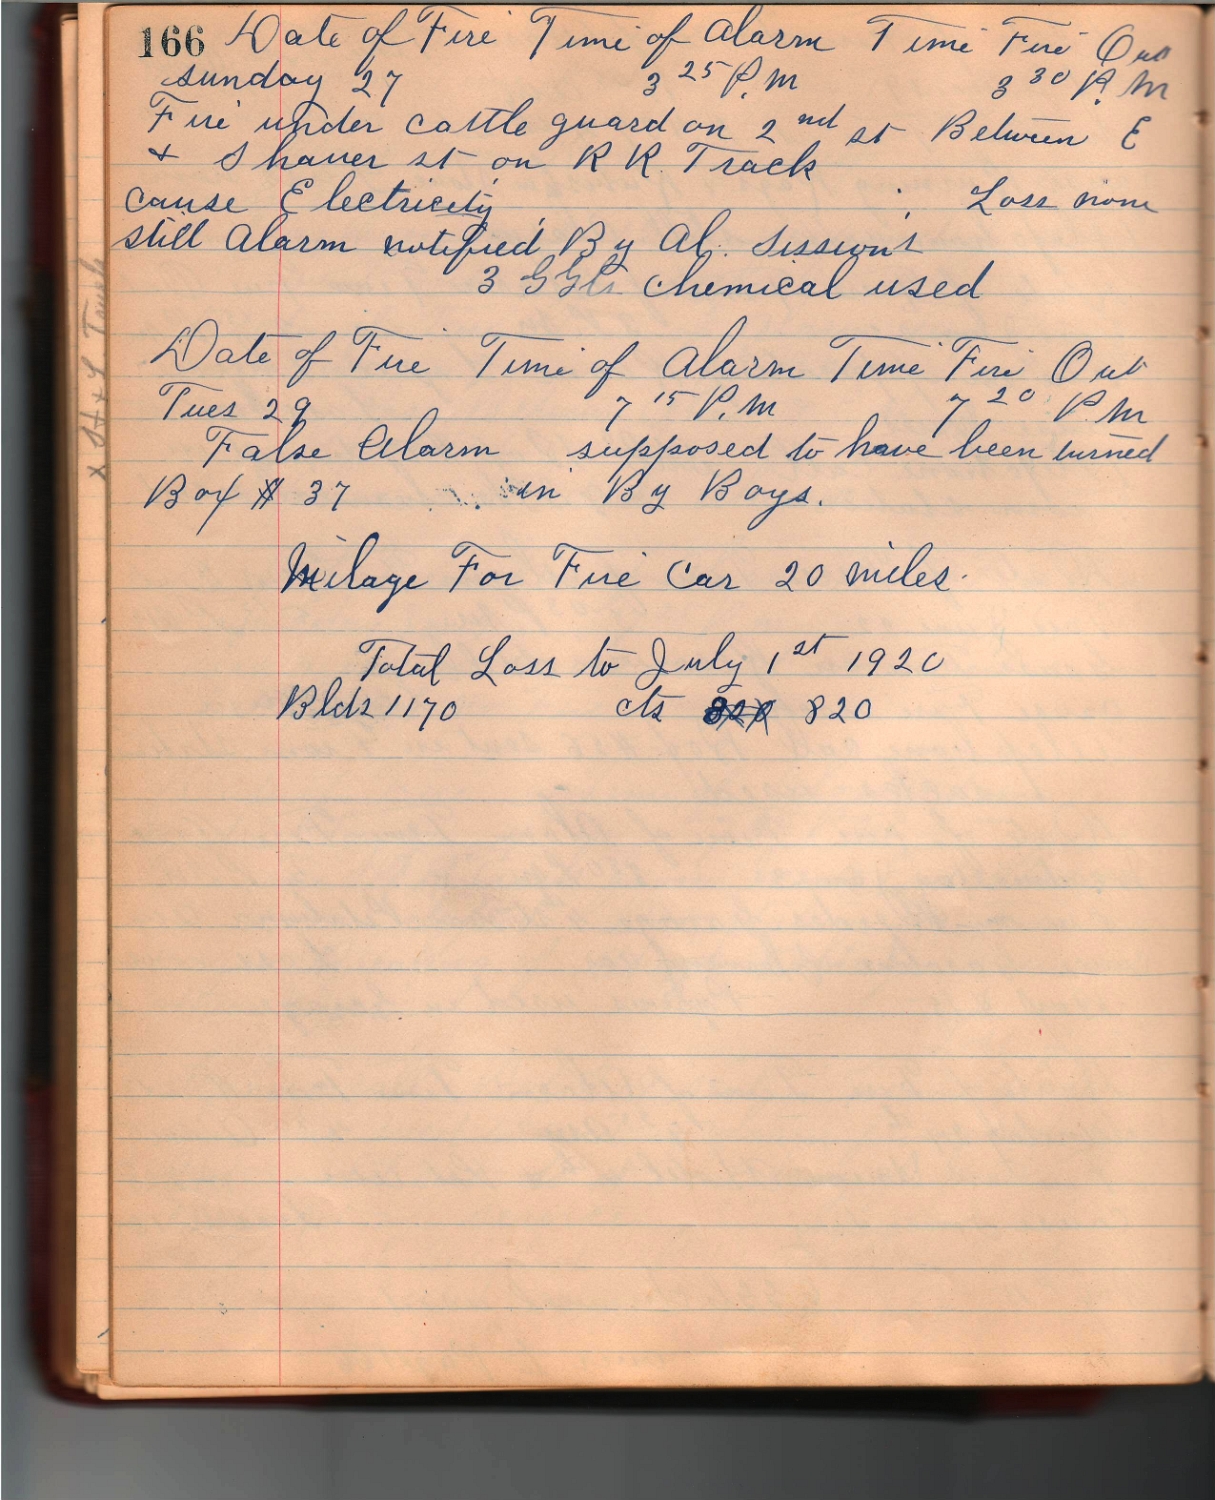 166 Date of Fire Time of Alarm Time Fire Out
Sunday 27 3 25 P.M 3 30 P.M
Fire under cattle guard on 2nd st Between E
+ Shaver st on R R. Track
cause Electricity ; Loss none
still Alarm notified By Al.
3 chemical used
Date of Fire Time of Alarm Time Fire Out
Tues 29 7 15 P.M 7 20 P M
False Alarm supposed to have been turned
Box # 37 in By Boys.
Milage For Fire Car 20 miles.
Total Loss to July 1st 1920
Blds 1170 cts 820 820